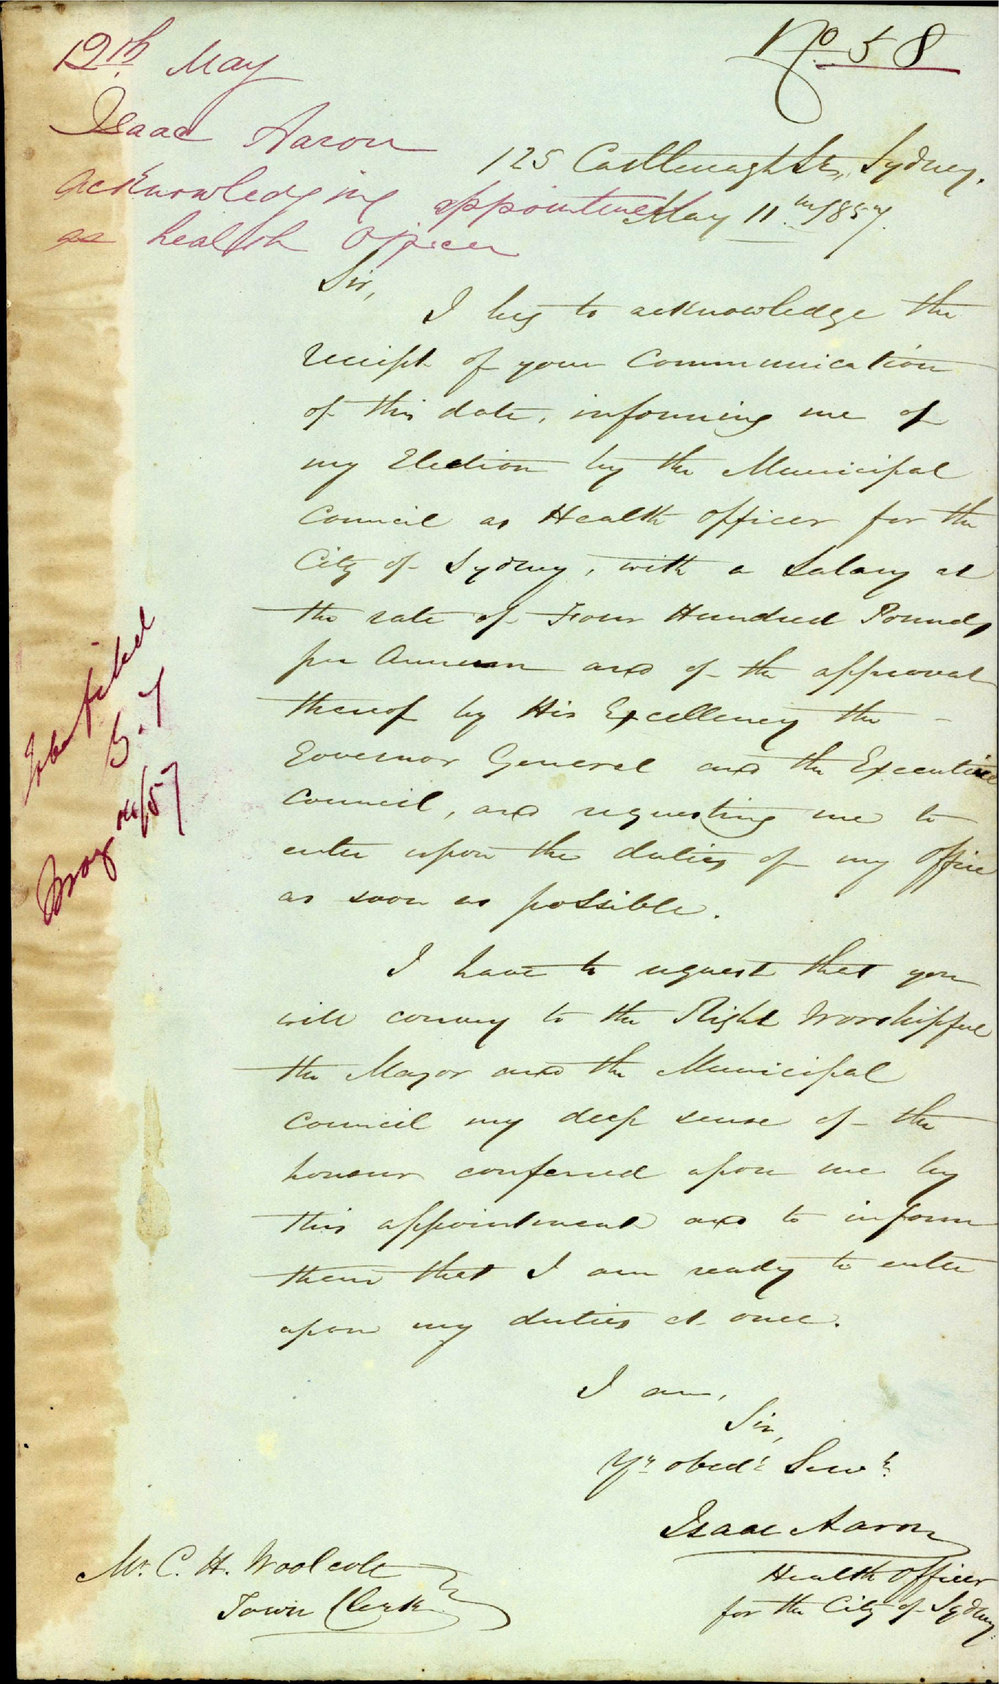 No. 58
12th May
Isaac Aaron
acknowledging appointment
as health Officer
125 Castlereagh St., Sydney.
May 11th 1857.
Sir,
I beg to acknowledge the
receipt of your Communication
of this date, informing me of
my Election by the Municipal
Council as Health Officer for the
City of Sydney, with a Salary at
the rate of Four Hundred Pounds
per Annum and of the approval
thereof by His Excellency the
Governor General and the Executive
Council, and requesting me to
enter upon the duties of my Office
as soon as possible.
I have to request that you
will convey to the Right Worshipful
the Mayor and the Municipal
Council my deep sense of the
honour conferred upon me by
this appointment and to inform
them that I am ready to enter
upon my duties at once.
I am,
Sir,
Yr. obedt. Servt.
Isaac Aaron
Health Officer
for the City of Sydney.
Mr. C. H. Woolcott
Town Clerk
filed
May /57